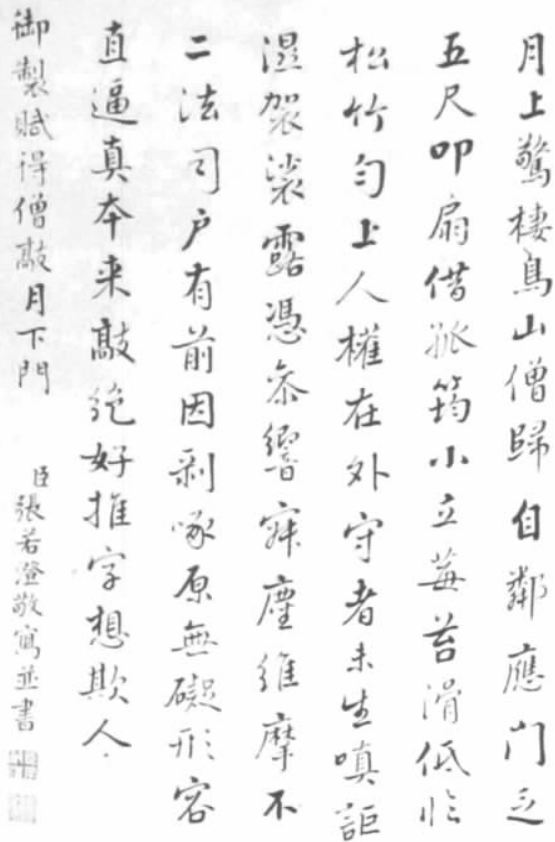 月上驚棲鳥山僧歸自鄰應門乏
五尺叩扇借孤筠小立莓苔滑低臨
松竹勻上人權在外守者未生嗔詎
湿袈裟露憑叅響寂塵維摩不
二法司户有前因剥啄原無礙形容
直逼真本来敲絶好推字想欺人
御製賦得僧敲月下門
臣張若澄敬寫並書